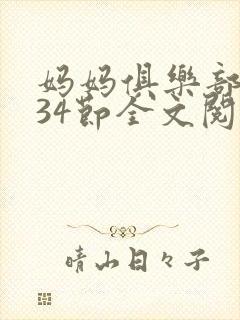 妈妈俱樂部
34節全文閱
晴山日々子